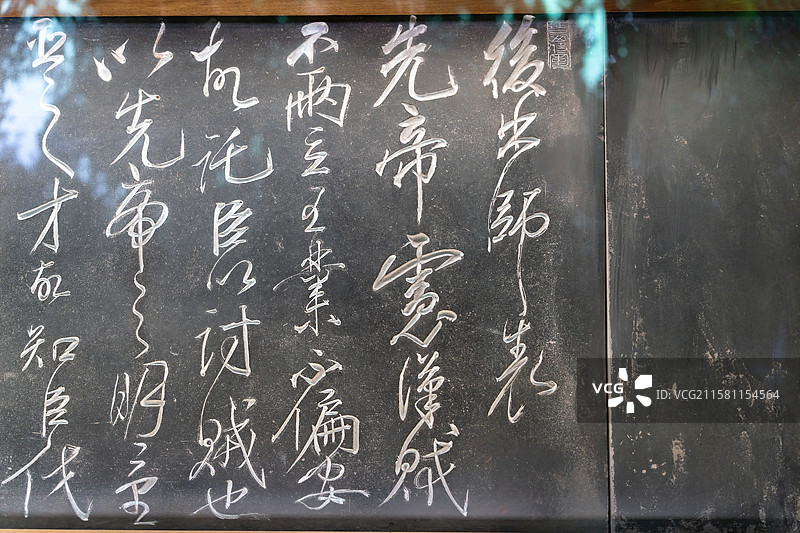 後出師表
先帝慮漢賊
不兩立王業不偏安
故託臣以討賊也
以先帝之明量
臣之才故知臣伐
VCG ID:VCG211581154564